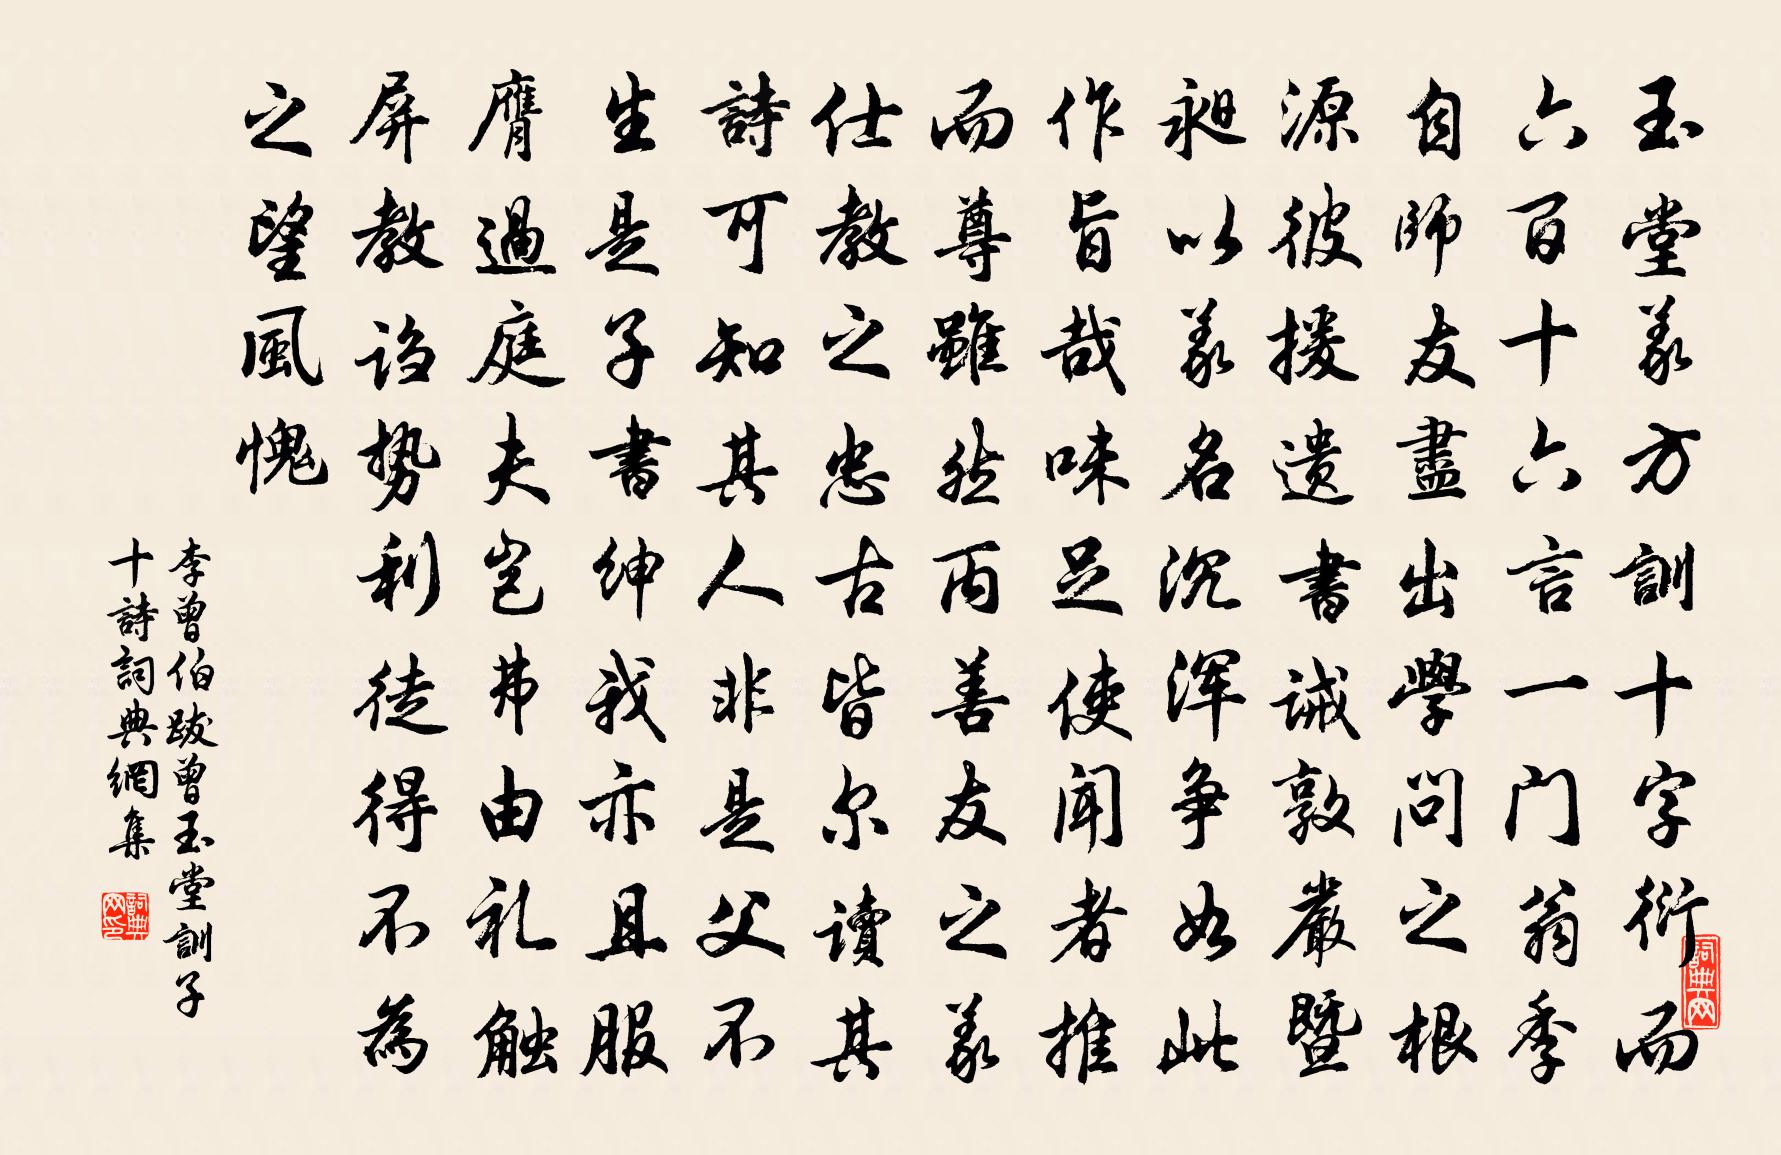 玉堂義方訓十字衍而
六百十六言一门翁季
自師友盡出學問之根
源彼援遗書誡敦嚴暨
昶以義名沉浑争如此
作旨哉味足使闻者推
而尊雖然丙善友之義
仕教之忠古皆尔讀其
詩可知其人非是父不
生是子書绅我亦且服
膺過庭夫岂弗由礼触
屏教谄势利徒得不為
之望風愧
李曾伯跋曾玉堂訓子
十詩詞典網集
詞典网
詞典网印